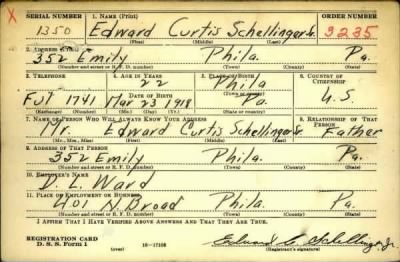 X
SERIAL NUMBER 1. NAME (Print) ORDER NUMBER
1350 Edward Curtis Schellinger Jr. 3235
(First) (Middle) (Last)
2. ADDRESS (Print)
352 Emily Phila. Pa.
(Number and street or R. F. D. number) (Town) (County) (State)
3. TELEPHONE 4. AGE IN YEARS 5. PLACE OF BIRTH 6. COUNTRY OF CITIZENSHIP
22 Phila
DATE OF BIRTH (Town or county)
1741 Mar 23 1918 Pa. U.S.
(Exchange) (Number) (Mo.) (Day) (Yr.) (State or country)
7. NAME OF PERSON WHO WILL ALWAYS KNOW YOUR ADDRESS 8. RELATIONSHIP OF THAT PERSON
Mr. Edward Curtis Schellinger Sr. Father
(Mr., Mrs., Miss) (First) (Middle) (Last)
9. ADDRESS OF THAT PERSON
352 Emily Phila. Pa.
(Number and street or R. F. D. number) (Town) (County) (State)
10. EMPLOYER'S NAME
D. L. Ward
11. PLACE OF EMPLOYMENT OR BUSINESS
401 N Broad Phila. Pa.
(Number and street or R. F. D. number) (Town) (County) (State)
I AFFIRM THAT I HAVE VERIFIED ABOVE ANSWERS AND THAT THEY ARE TRUE.
REGISTRATION CARD
D. S. S. Form 1 (over) 16—17105 Edward C. Schellinger Jr.